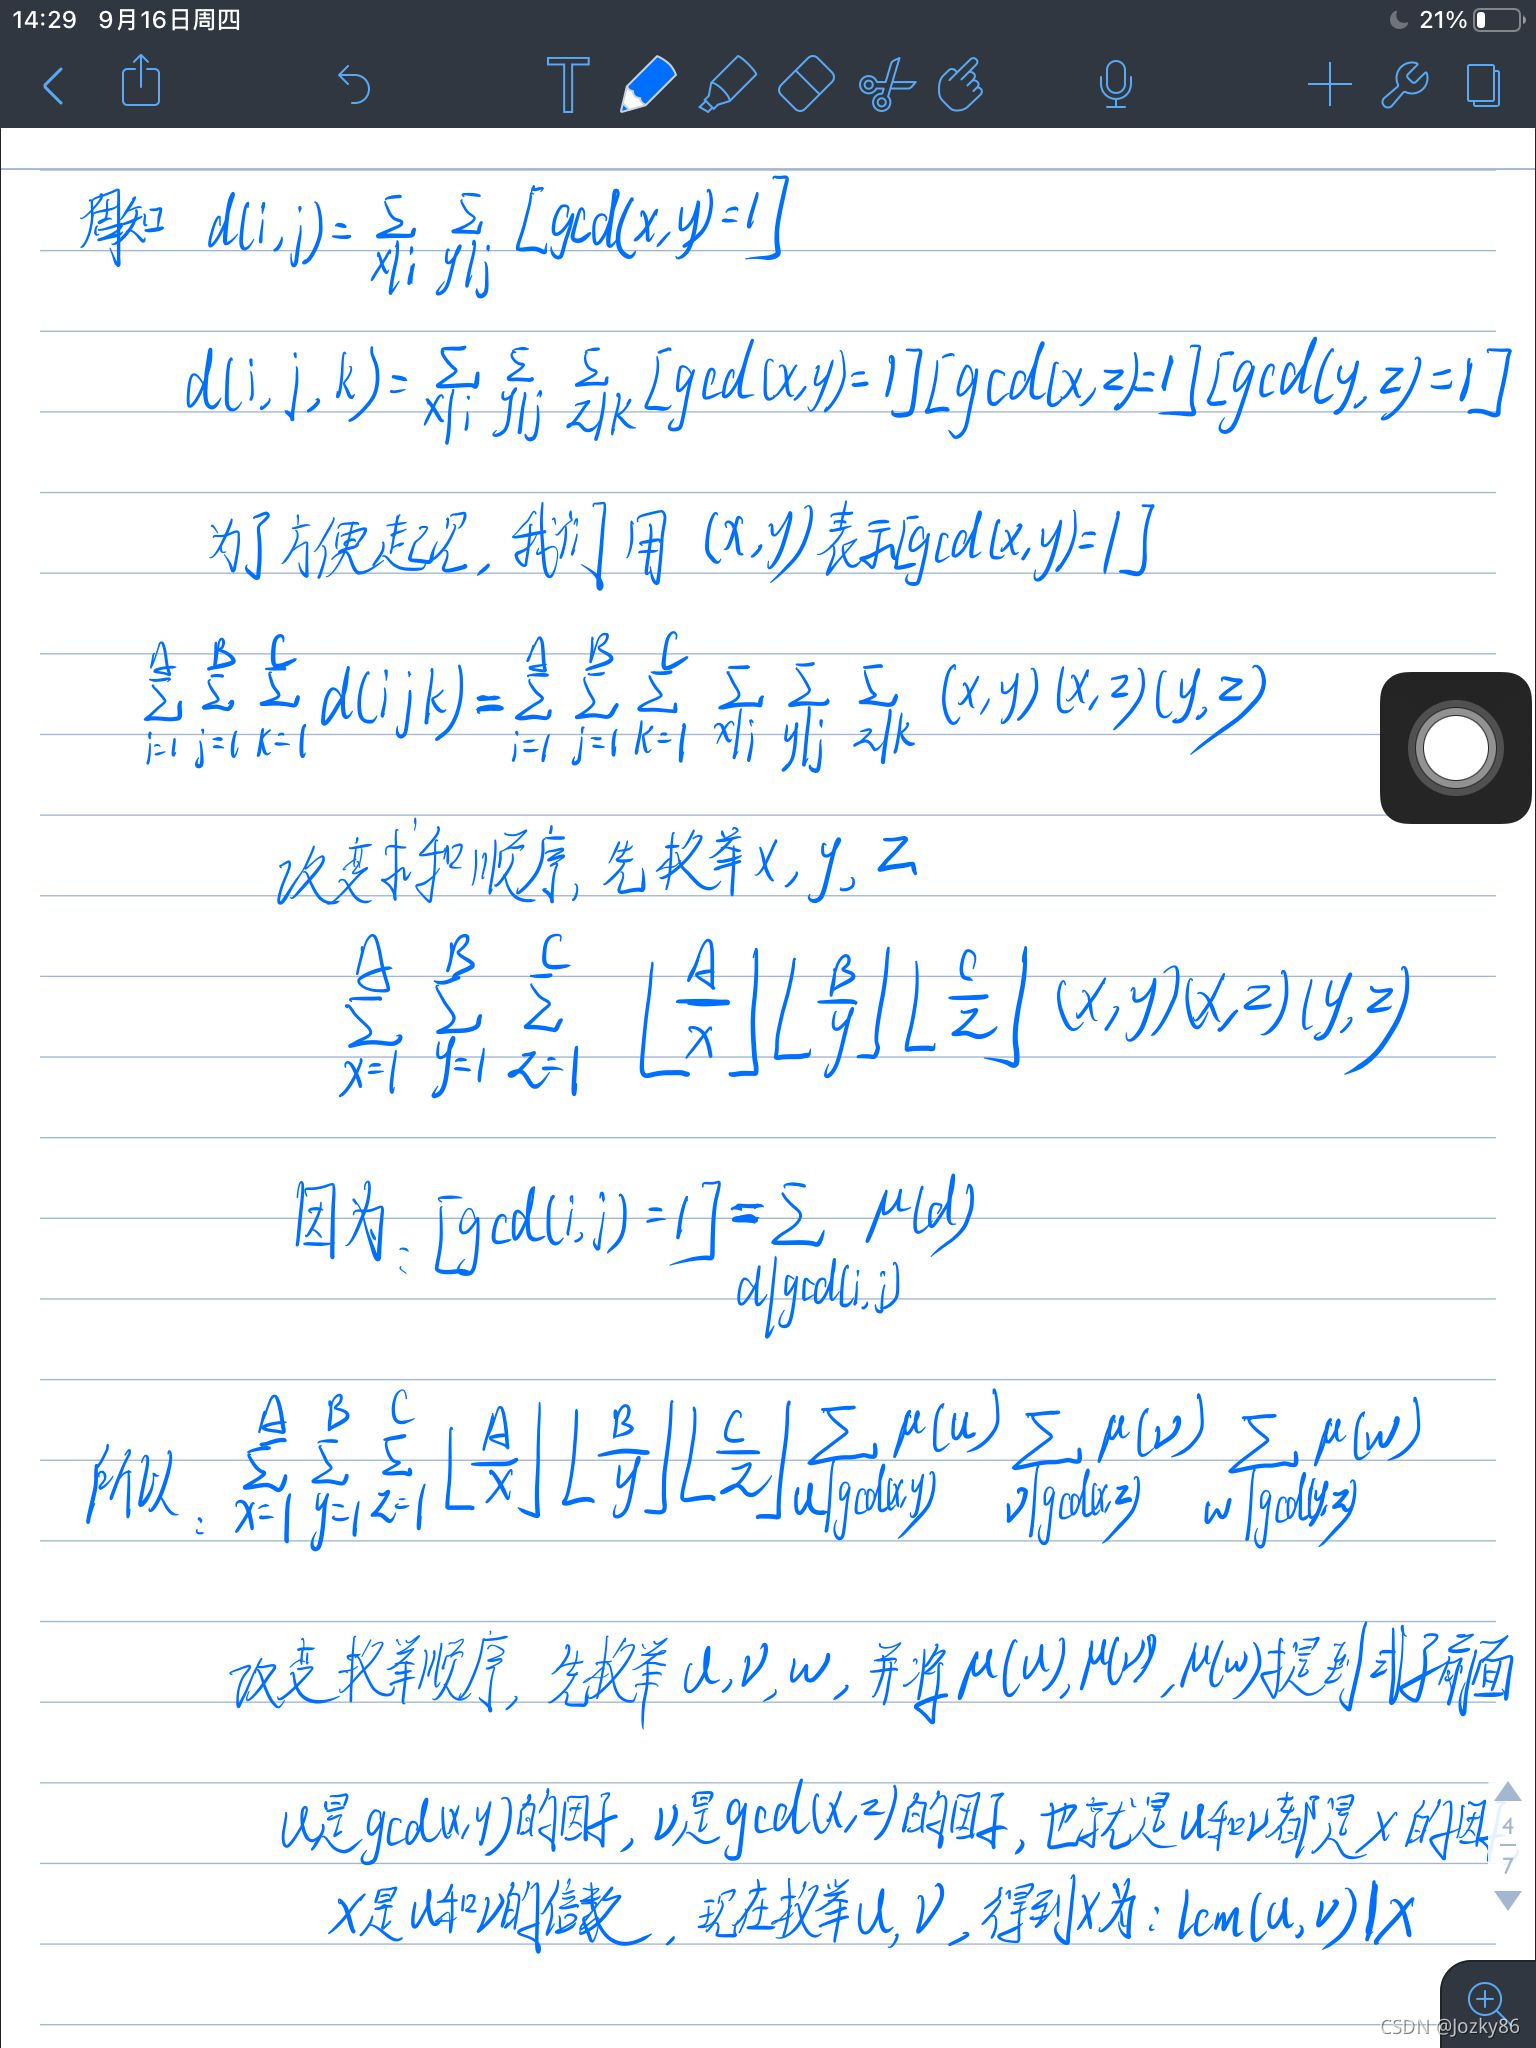 14:29 9月16日周四 21%
周知 d(i,j)=∑_{x|i} ∑_{y|j} [gcd(x,y)=1]
d(i,j,k)=∑_{x|i} ∑_{y|j} ∑_{z|k} [gcd(x,y)=1][gcd(x,z)=1][gcd(y,z)=1]
为了方便起见,我们用 (x,y)表示[gcd(x,y)=1]
∑_{i=1}^{A} ∑_{j=1}^{B} ∑_{k=1}^{C} d(ijk)=∑_{i=1}^{A} ∑_{j=1}^{B} ∑_{k=1}^{C} ∑_{x|i} ∑_{y|j} ∑_{z|k} (x,y)(x,z)(y,z)
改变求和顺序,先枚举x,y,z
∑_{x=1}^{A} ∑_{y=1}^{B} ∑_{z=1}^{C} ⌊A/x⌋⌊B/y⌋⌊C/z⌋ (x,y)(x,z)(y,z)
因为:[gcd(i,j)=1]=∑_{d|gcd(i,j)} μ(d)
所以:∑_{x=1}^{A} ∑_{y=1}^{B} ∑_{z=1}^{C} ⌊A/x⌋⌊B/y⌋⌊C/z⌋ ∑_{u|gcd(x,y)} μ(u) ∑_{v|gcd(x,z)} μ(v) ∑_{w|gcd(y,z)} μ(w)
改变枚举顺序,先枚举u,v,w,并将μ(u),μ(v),μ(w)提到式子前面
u是gcd(x,y)的因子,v是gcd(x,z)的因子,也就是u和v都是x的因
x是u和v的倍数,现在枚举u,v,得到x为:lcm(u,v)|x
4
7
CSDN @Jozky86